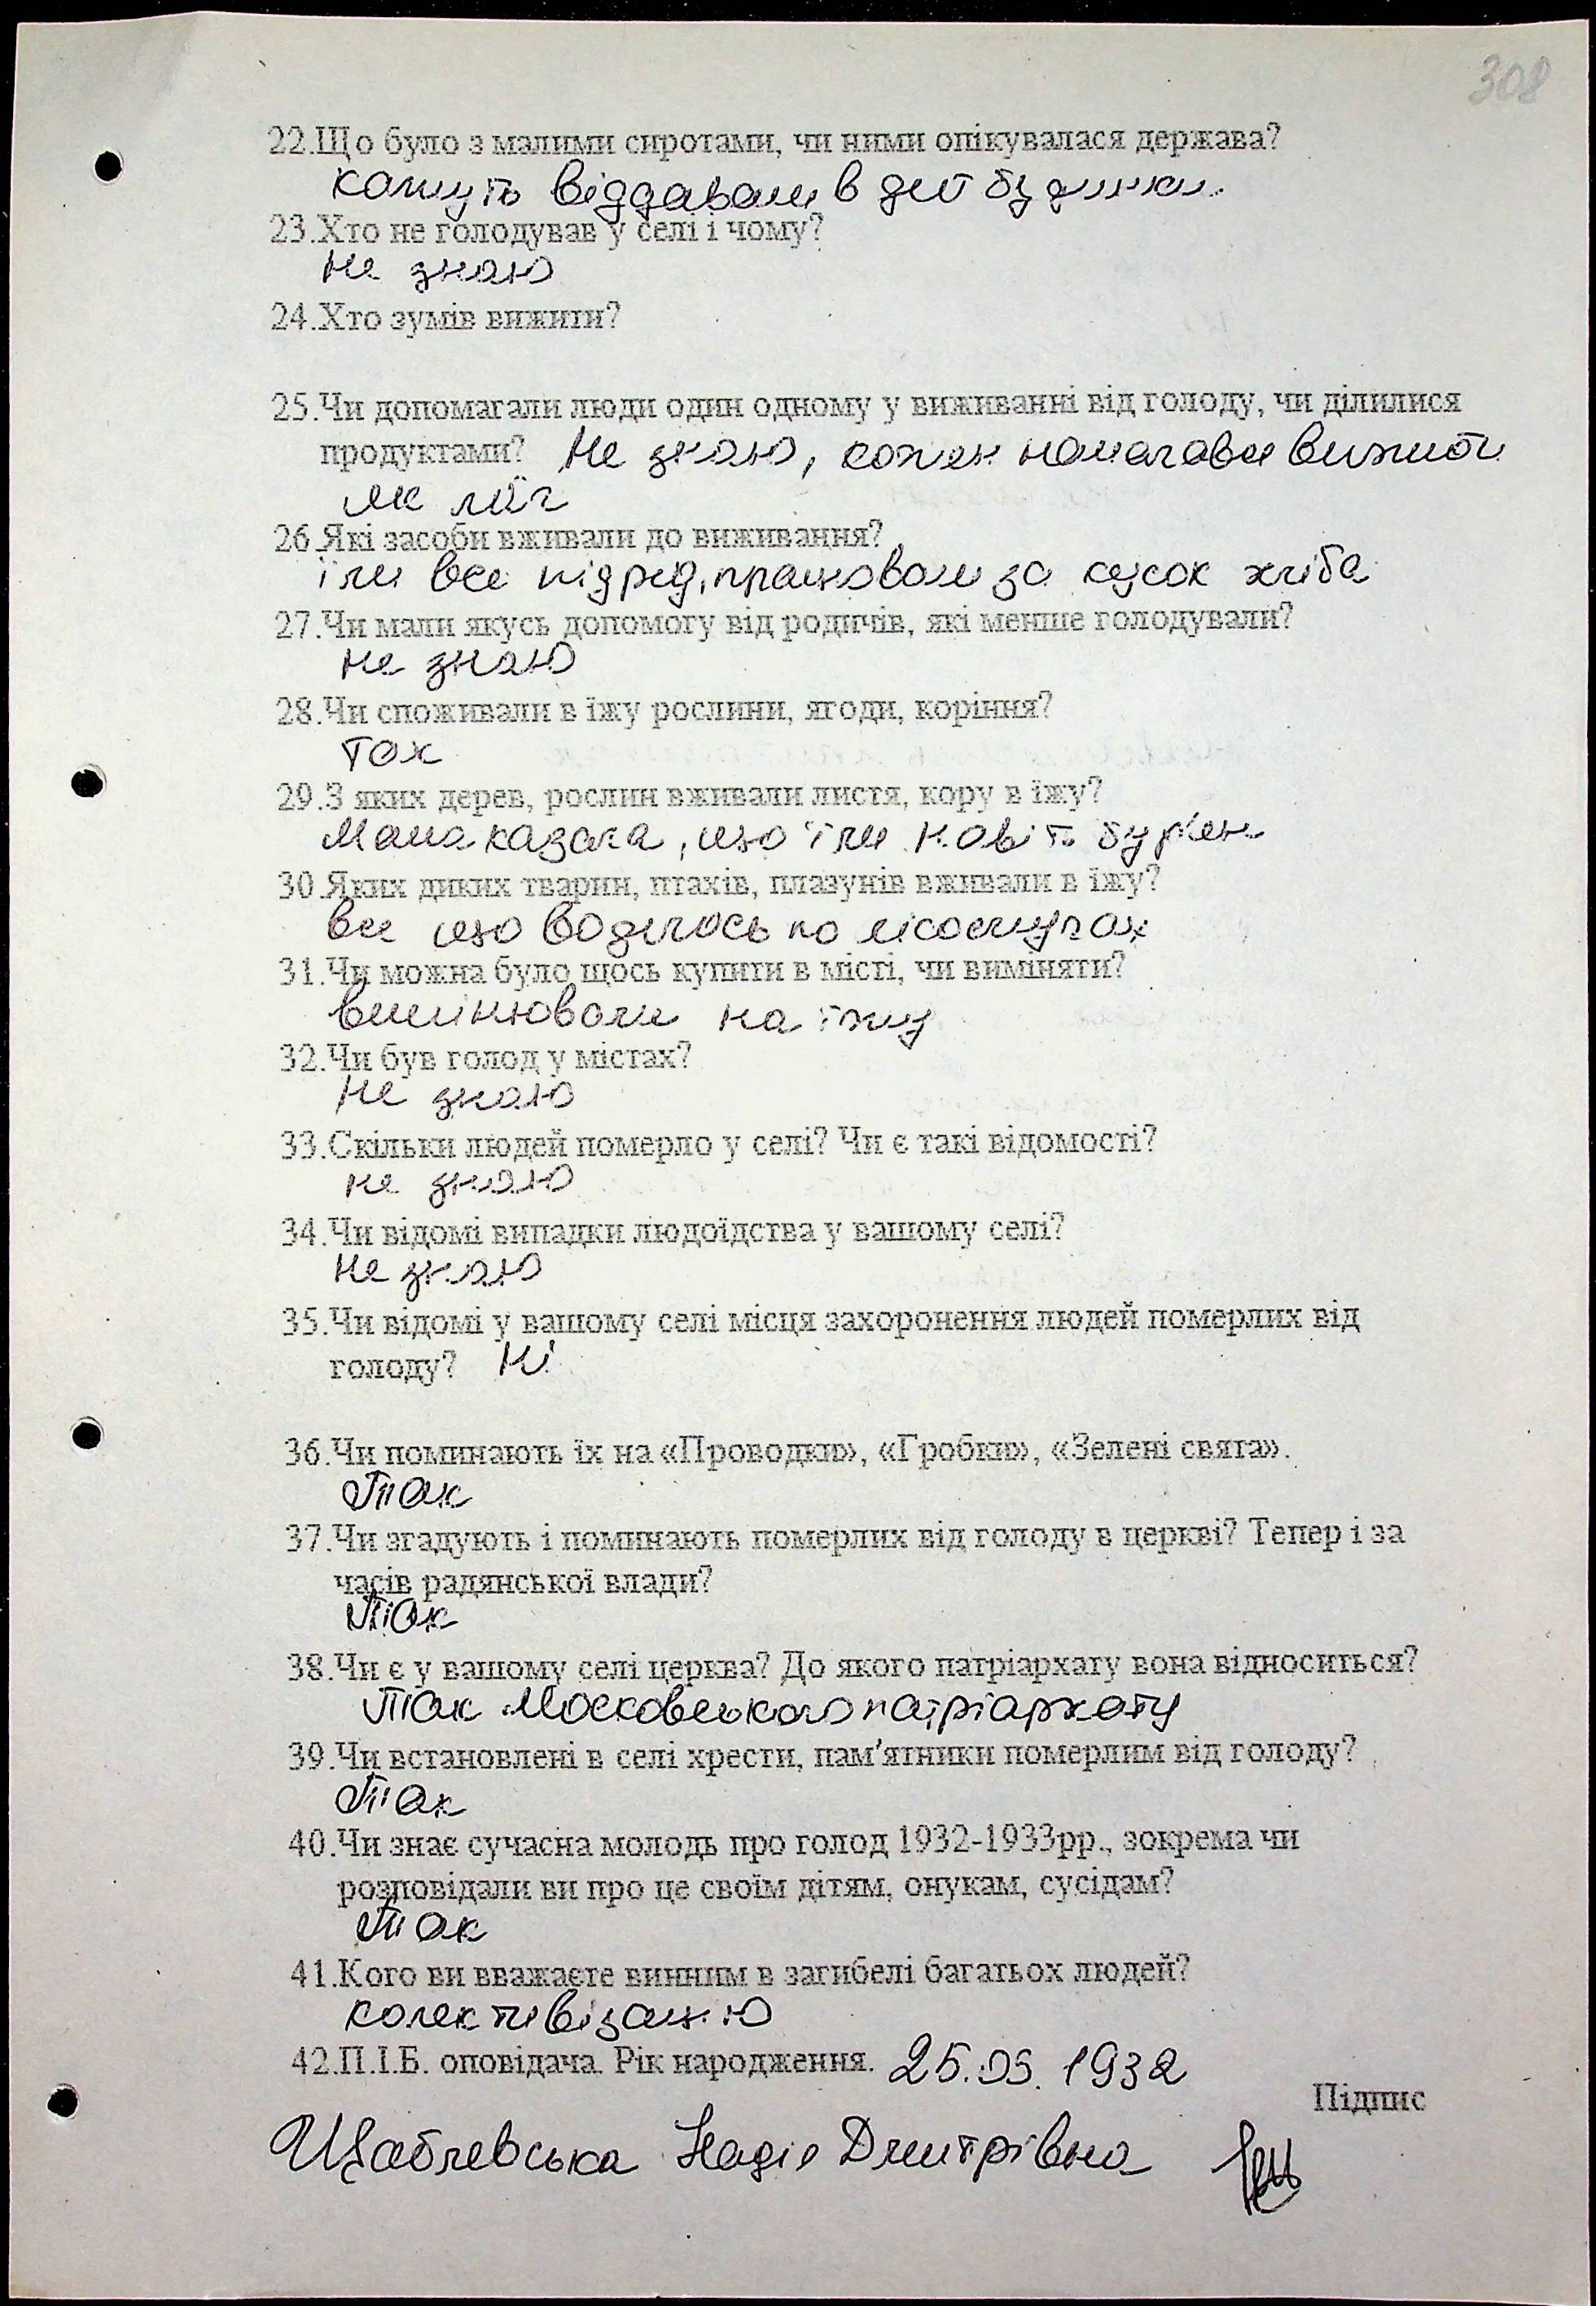 308
22.Що було з малими сиротами, чи ними опікувалася держава?
кажуть віддавали в дит будинки.
23.Хто не голодував у селі і чому?
не знаю
24.Хто зумів вижити?
25.Чи допомагали люди один одному у виживанні від голоду, чи ділилися
продуктами? Не знаю, кожен намагався вижити
як міг
26.Які засоби вживали до виживання?
їли все підряд, працювали за кусок хліба
27.Чи мали якусь допомогу від родичів, які менше голодували?
не знаю
28.Чи споживали в їжу рослини, ягоди, коріння?
так
29.З яких дерев, рослин вживали листя, кору в їжу?
Мама казала, що їли навіть бур'ян
30.Яких диких тварин, птахів, плазунів вживали в їжу?
все що водилось по лісосмугах
31.Чи можна було щось купити в місті, чи виміняти?
вимінювали на їжу
32.Чи був голод у містах?
Не знаю
33.Скільки людей померло у селі? Чи є такі відомості?
не знаю
34.Чи відомі випадки людоїдства у вашому селі?
не знаю
35.Чи відомі у вашому селі місця захоронення людей померлих від
голоду? Ні
36.Чи поминають їх на «Проводки», «Гробки», «Зелені свята».
Так
37.Чи згадують і поминають померлих від голоду в церкві? Тепер і за
часів радянської влади?
Так
38.Чи є у вашому селі церква? До якого патріархату вона відноситься?
Так Московського патріархату
39.Чи встановлені в селі хрести, пам'ятники померлим від голоду?
Так
40.Чи знає сучасна молодь про голод 1932-1933рр., зокрема чи
розповідали ви про це своїм дітям, онукам, сусідам?
Так
41.Кого ви вважаєте винним в загибелі багатьох людей?
колективізацію
42.П.І.Б. оповідача. Рік народження. 25.05.1932
Підпис
Щаблевська Надія Дмитрівна